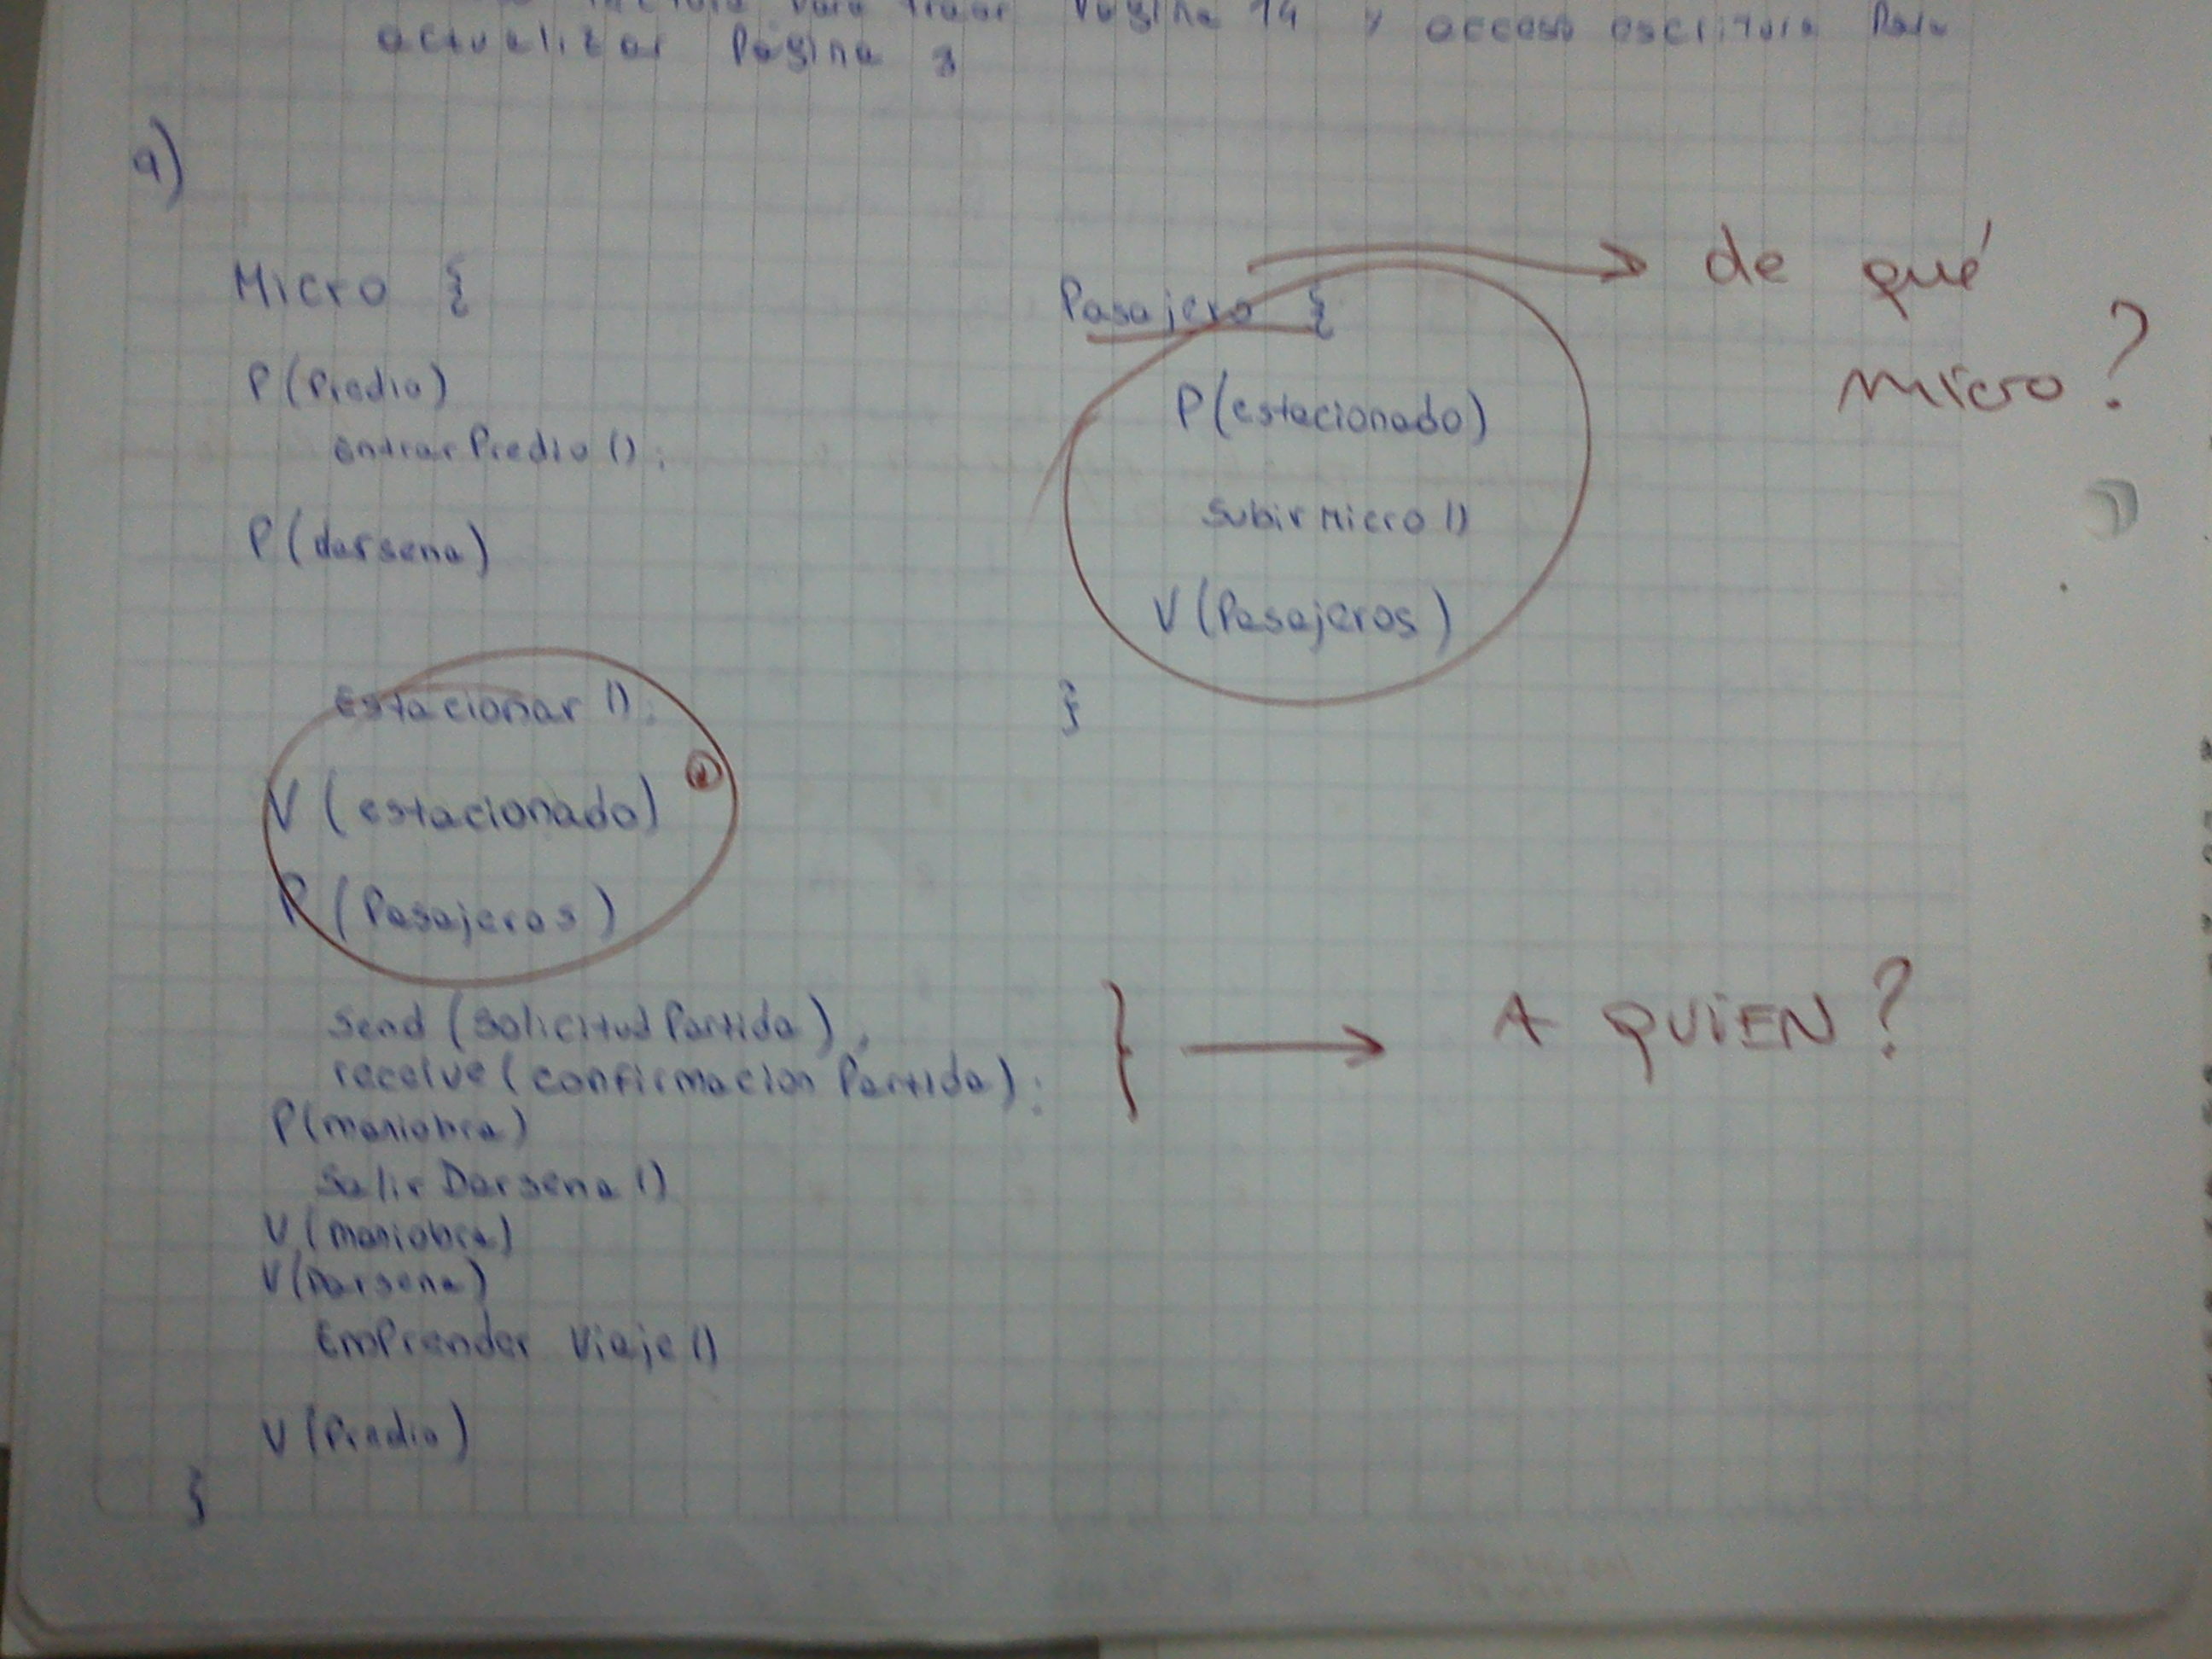 Página 14 y acceso escritura Para
actualizar Página 3
a)
Micro {
P(Predio)
entrarPredio();
P(darsena)
Estacionar();
V(estacionado)
P(Pasajeros)
send(solicitud Partida);
receive(confirmacion Partida);
P(maniobra)
Salir Darsena()
V(maniobra)
V(Darsena)
EmPrender Viaje()
V(Predio)
}
Pasajero {
P(estacionado)
subir Micro()
V(Pasajeros)
}
de qué
micro?
} → A QUIEN?